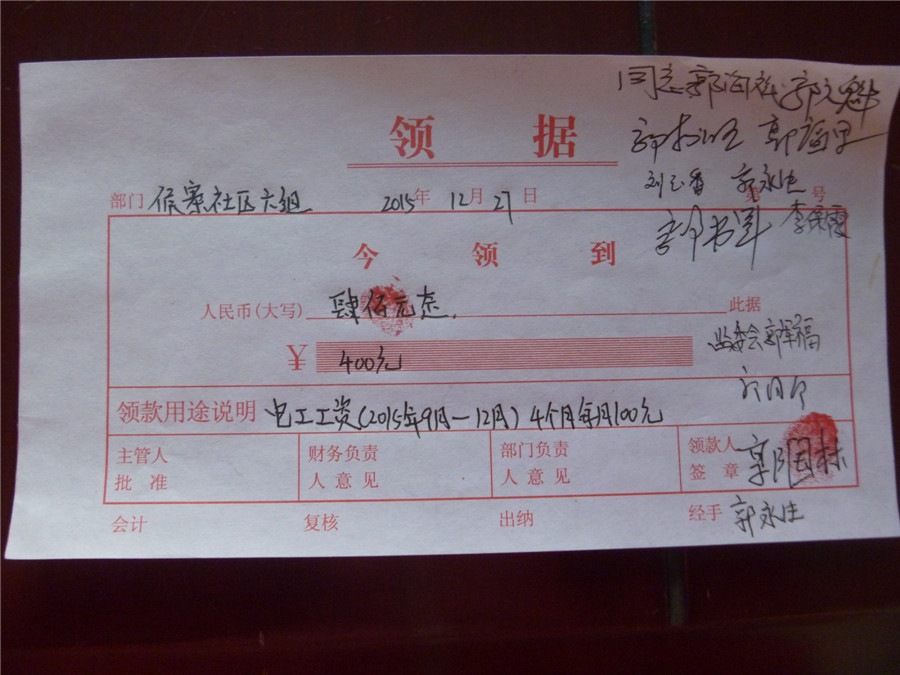 同意
领 据
部门 侯寨社区六组 2015年 12月 27日 第 号
郭永生
李保霞
今 领 到
人民币(大写) 肆佰元整. 此据
¥ 400元
监委会 郭军福
领款用途说明 电工工资(2015年9月—12月) 4个月每月100元
主管人 财务负责 部门负责 领款人
批 准 人 意 见 人 意 见 签 章
会计 复核 出纳 经手 郭永生